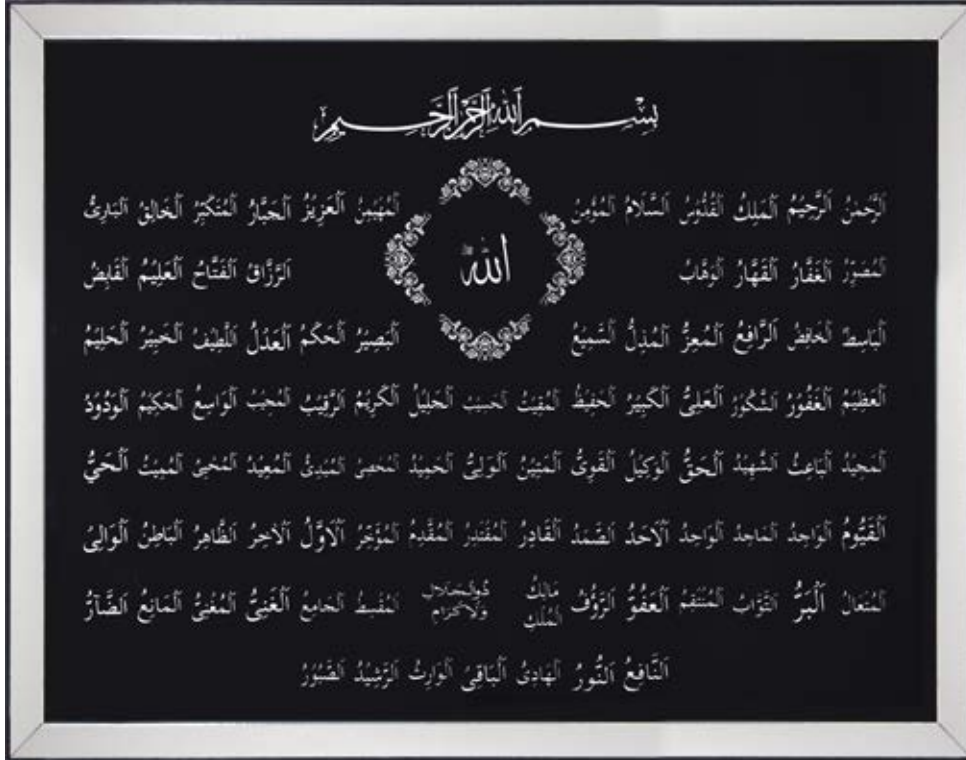 بِسْمِ اللهِ الرَّحْمٰنِ الرَّحِيمِ
اَلرَّحْمٰنُ اَلرَّحِيمُ اَلْمَلِكُ اَلْقُدُّوسُ اَلسَّلَامُ اَلْمُؤْمِنُ اَلْمُهَيْمِنُ اَلْعَزِيزُ اَلْجَبَّارُ اَلْمُتَكَبِّرُ اَلْخَالِقُ اَلْبَارِئُ
اَلْمُصَوِّرُ اَلْغَفَّارُ اَلْقَهَّارُ اَلْوَهَّابُ اللهُ اَلرَّزَّاقُ اَلْفَتَّاحُ اَلْعَلِيمُ اَلْقَابِضُ
اَلْبَاسِطُ اَلْخَافِضُ اَلرَّافِعُ اَلْمُعِزُّ اَلْمُذِلُّ اَلسَّمِيعُ اَلْبَصِيرُ اَلْحَكَمُ اَلْعَدْلُ اَللَّطِيفُ اَلْخَبِيرُ اَلْحَلِيمُ
اَلْعَظِيمُ اَلْغَفُورُ اَلشَّكُورُ اَلْعَلِىُّ اَلْكَبِيرُ اَلْحَفِيظُ اَلْمُقِيتُ اَلْحَسِيبُ اَلْجَلِيلُ اَلْكَرِيمُ اَلرَّقِيبُ اَلْمُجِيبُ اَلْوَاسِعُ اَلْحَكِيمُ اَلْوَدُودُ
اَلْمَجِيدُ اَلْبَاعِثُ اَلشَّهِيدُ اَلْحَقُّ اَلْوَكِيلُ اَلْقَوِىُّ اَلْمَتِينُ اَلْوَلِىُّ اَلْحَمِيدُ اَلْمُحْصِى اَلْمُبْدِئُ اَلْمُعِيدُ اَلْمُحْيِى اَلْمُمِيتُ اَلْحَىُّ
اَلْقَيُّومُ اَلْوَاجِدُ اَلْمَاجِدُ اَلْوَاحِدُ اَلْاَحَدُ اَلصَّمَدُ اَلْقَادِرُ اَلْمُقْتَدِرُ اَلْمُقَدِّمُ اَلْمُؤَخِّرُ اَلْاَوَّلُ اَلْاٰخِرُ اَلظَّاهِرُ اَلْبَاطِنُ اَلْوَالِىُ
اَلْمُتَعَالُ اَلْبَرُّ اَلتَّوَّابُ اَلْمُنْتَقِمُ اَلْعَفُوُّ اَلرَّؤُفُ مَالِكُ الْمُلْكِ ذُو الْجَلَالِ وَالْاِكْرَامِ اَلْمُقْسِطُ اَلْجَامِعُ اَلْغَنِىُّ اَلْمُغْنِىُّ اَلْمَانِعُ اَلضَّآرُّ
اَلنَّافِعُ اَلنُّورُ اَلْهَادِىُ اَلْبَاقِىُ اَلْوَارِثُ اَلرَّشِيدُ اَلصَّبُورُ